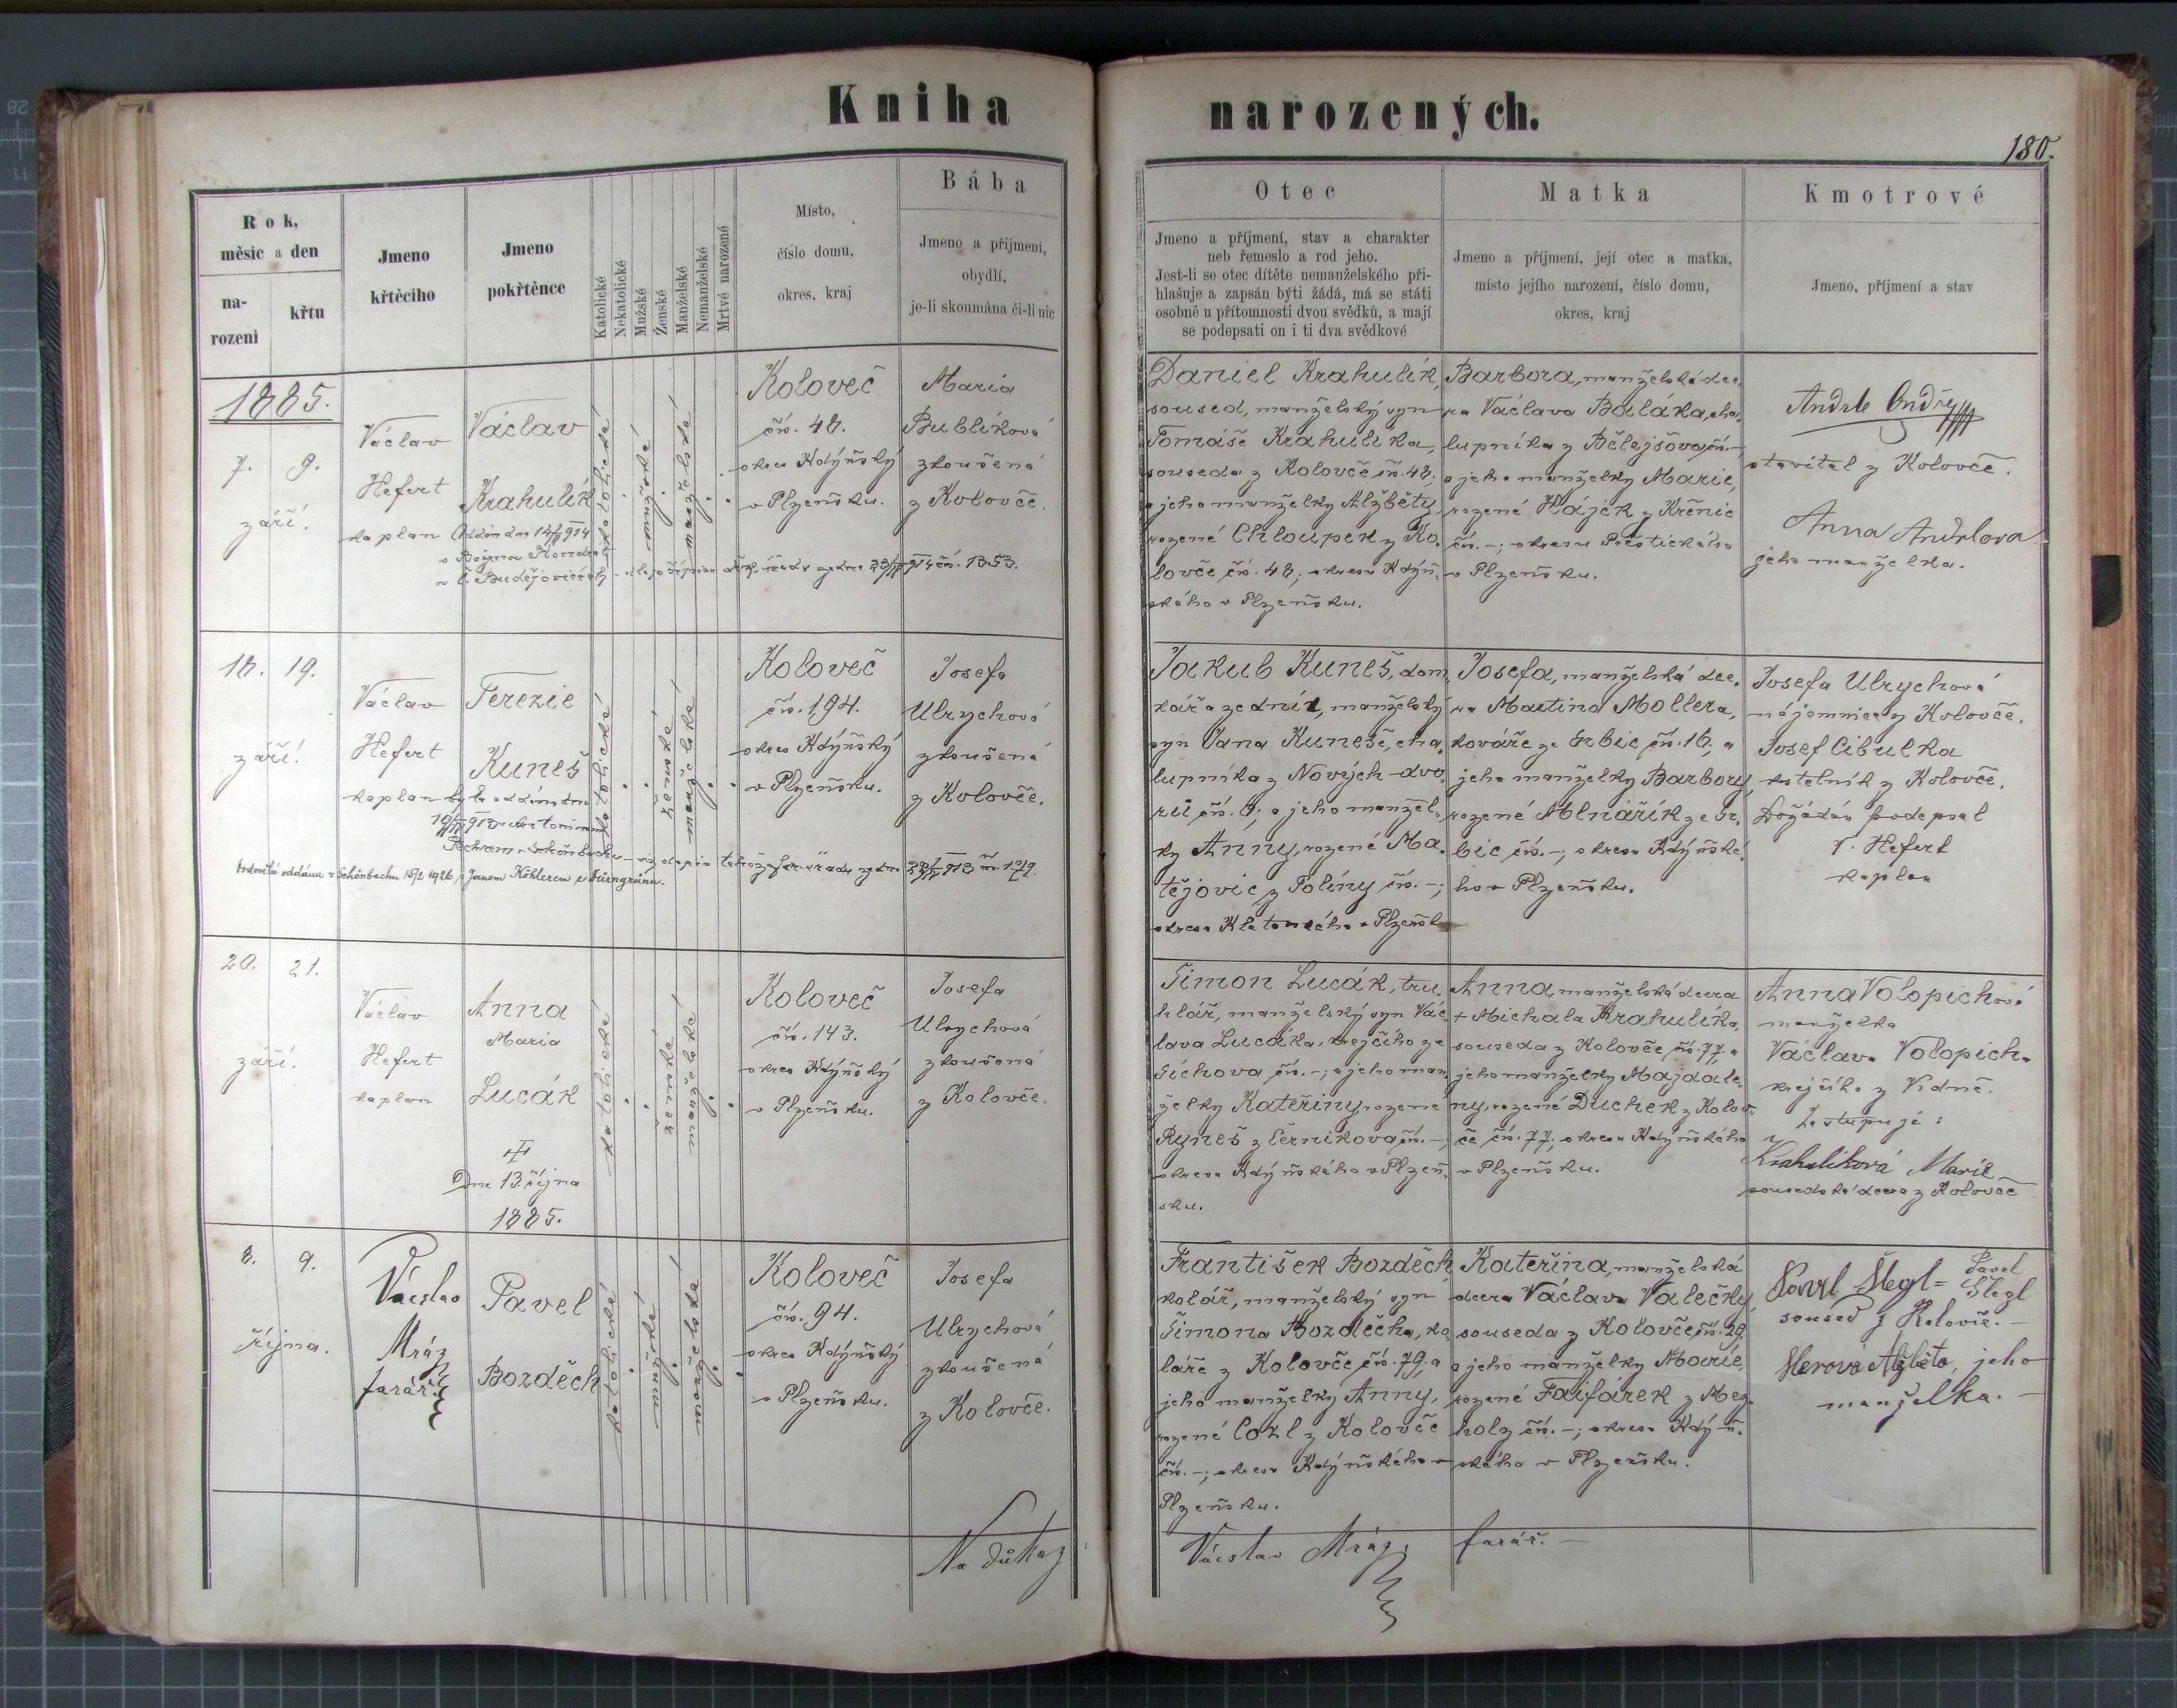 Kniha narozených.
180.
Rok,
měsíc a den
na-
rozeni
křtu
Jmeno
křtěcího
Jmeno
pokřtěnce
Katolické
Nekatolické
Mužské
Ženské
Manželské
Nemanželské
Mrtvé narozené
Místo,
číslo domu,
okres, kraj
Bába
Jmeno a přijmení,
obydlí,
je-li skoumána či-li nic
Otec
Jmeno a příjmení, stav a charakter
neb řemeslo a rod jeho.
Jest-li se otec dítěte nemanželského při-
hlašuje a zapsán býti žádá, má se státi
osobně u přítomnosti dvou svědků, a mají
se podepsati on i ti dva svědkové
Matka
Jmeno a příjmení, její otec a matka,
místo jejího narození, číslo domu,
okres, kraj
Kmotrové
Jmeno, příjmení a stav
1885.
7. 9.
září.
Václav
Hefert
kaplan
Václav
Krahulík
Oddán dne
katolické
mužské
manželské
Koloveč
čís. 48.
okres Kdýňský
v Plzeňsku.
Maria
Bublíková
zkoušená
z Kolovče.
Daniel Krahulík,
soused, manželský syn
Tomáše Krahulíka,
souseda z Kolovče čís. 48;
a jeho manželky Alžběty,
rozené Chloupek z Ko-
lovče čís. 48; okresu Kdýň-
ského v Plzeňsku.
Barbora, manželská dce-
ra Václava Baláka, cha-
lupníka z Bělejšova, čís. –,
a jeho manželky Marie,
rozené Hájek z Křenic
čís. –; okresu Přeštického
v Plzeňsku.
Andrle Ondřej
stavitel z Kolovče.
Anna Andrlova
jeho manželka.
18. 19.
září.
Václav
Hefert
kaplan
Terezie
Kuneš
katolické
ženské
manželské
Koloveč
čís. 194.
okres Kdýňský
v Plzeňsku.
Josefa
Ulrychová
zkoušená
z Kolovče.
Podruhé oddána v Schönbachu 15/2 1926 s Janem Köhlerem z Dürngrünu.
Jakub Kuneš, dom-
kář a zedník, manželský
syn Jana Kuneše, cha-
lupníka z Nových-dvo-
rů čís. 6; a jeho manžel-
ky Anny, rozené Ma-
tějovic z Poliny čís. –;
okresu Klatovského v Plzeňsku
Josefa, manželská dce-
ra Martina Mollera,
kováře ze Srbic čís. 16; a
jeho manželky Barbory,
rozené Mlnářík ze Sr-
bic čís. –; okresu Kdýňské-
ho v Plzeňsku.
Josefa Ulrychová
nájemnice z Kolovče.
Josef Cibulka
kostelník z Kolovče.
Dožádán podepsal
V. Hefert
kaplan
20. 21.
září.
Václav
Hefert
kaplan
Anna
Maria
Lucák
Dne 13. října
1885.
katolické
ženské
manželské
Koloveč
čís. 143.
okres Kdýňský
v Plzeňsku.
Josefa
Ulrychová
zkoušená
z Kolovče.
Šimon Lucák, tru-
hlář, manželský syn Vác-
lava Lucáka, krejčího ze
Sichova čís. –; a jeho man-
želky Kateřiny, rozené
Ryneš z Černikova čís. –;
okresu Kdýňského v Plzeň-
sku.
Anna, manželská dcera
+ Michala Krahulíka,
souseda z Kolovče čís. 77; a
jeho manželky Majdale-
ny, rozené Duchek z Kolov-
če čís. 77; okresu Kdýňského
v Plzeňsku.
Anna Volopichová
manželka
Václava Volopicha
krejčího z Vidně.
Zastupuje:
Krahulíková Marie
sousedská dcera z Kolovče
8. 9.
října.
Václav
Mráz
farář.
Pavel
Bozděch
katolické
mužské
manželské
Koloveč
čís. 94.
okres Kdýňský
v Plzeňsku.
Josefa
Ulrychová
zkoušená
z Kolovče.
František Bozděch,
kolář, manželský syn
Šimona Bozděcha, ko-
láře z Kolovče čís. 79; a
jeho manželky Anny,
rozené Cozl z Kolovče
čís. –; okresu Kdýňského v
Plzeňsku.
Kateřina, manželská
dcera Václava Valečky,
souseda z Kolovče čís. 29,
a jeho manželky Marie,
rozené Faifárek z Mez-
holz čís. –; okresu Kdýň-
ského v Plzeňsku.
Pavel Šlegl = Pavel
Šlegl
soused z Kolovče. –
Alžběta, jeho
manželka. –
Na důkaz
Vácslav Mráz, farář. –